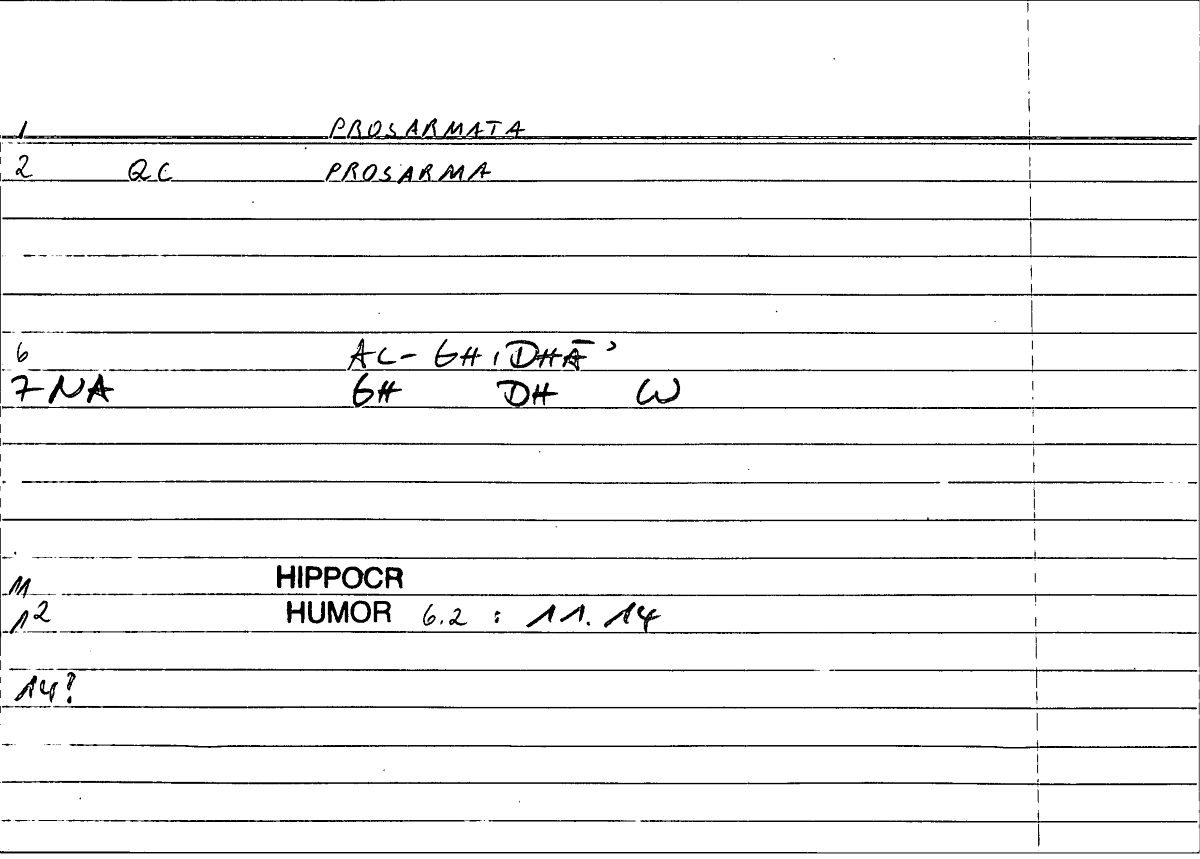 1 PROSARMATA
2 QC PROSARMA
6 AL-GH1DHĀʾ
7 NA GH DH W
11 HIPPOCR
12 HUMOR 6.2 : 11.14
14?